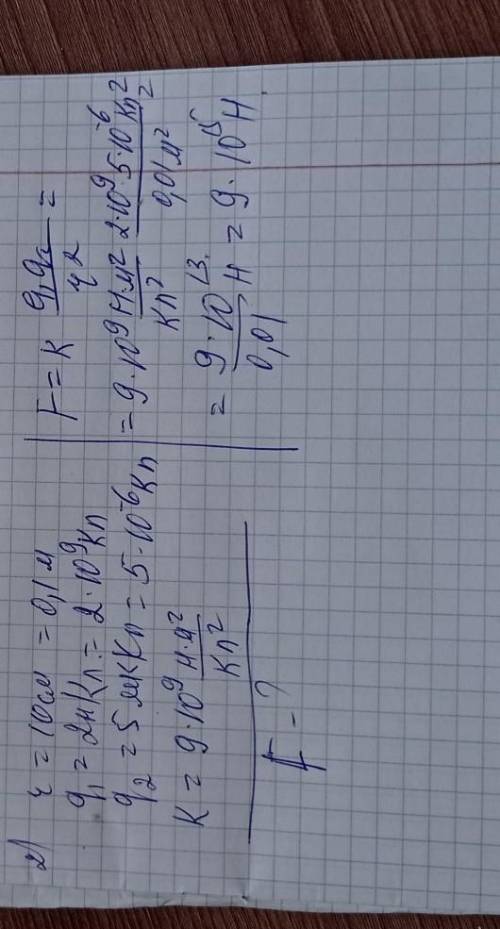 2) r = 10 см = 0,1 м
q₁ = 2 нКл = 2·10⁹ Кл
q₂ = 5 мкКл = 5·10⁻⁶ Кл
K = 9·10⁹ Н·м²/Кл²
F - ?
F = K q₁q₂/r² =
= 9·10⁹ Н·м²/Кл² 2·10⁹·5·10⁻⁶ Кл²/0,01 м² =
= 9·10¹³/0,01 Н = 9·10¹⁵ Н.